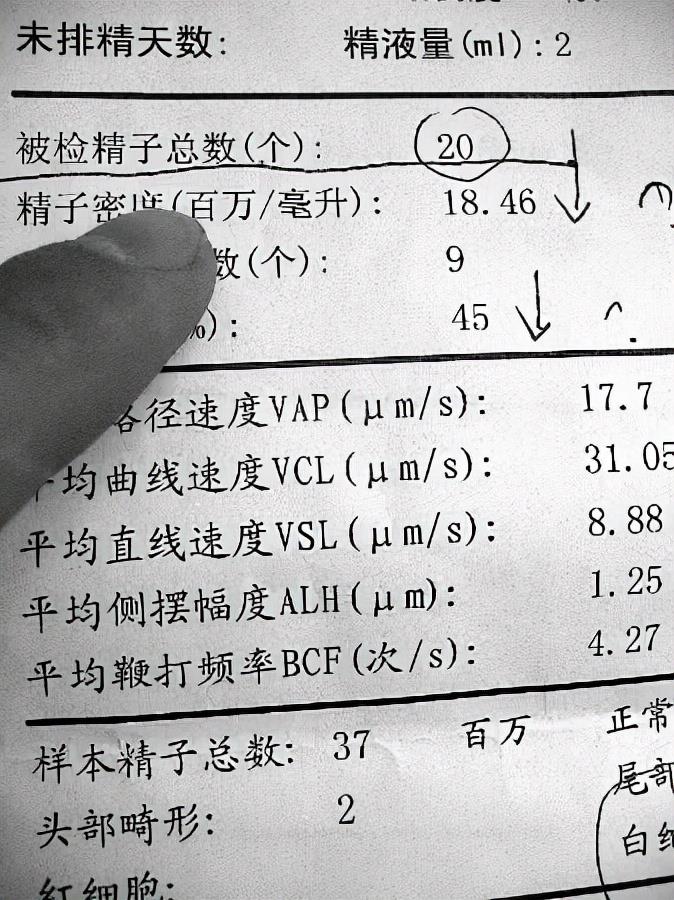 未排精天数: 精液量(ml): 2
被检精子总数(个): 20
精子密度(百万/毫升): 18.46
数(个): 9
): 45
径速度VAP(μm/s): 17.7
平均曲线速度VCL(μm/s): 31.05
平均直线速度VSL(μm/s): 8.88
平均侧摆幅度ALH(μm): 1.25
平均鞭打频率BCF(次/s): 4.27
样本精子总数: 37 百万 正常
头部畸形: 2 尾部
白细
红细胞: